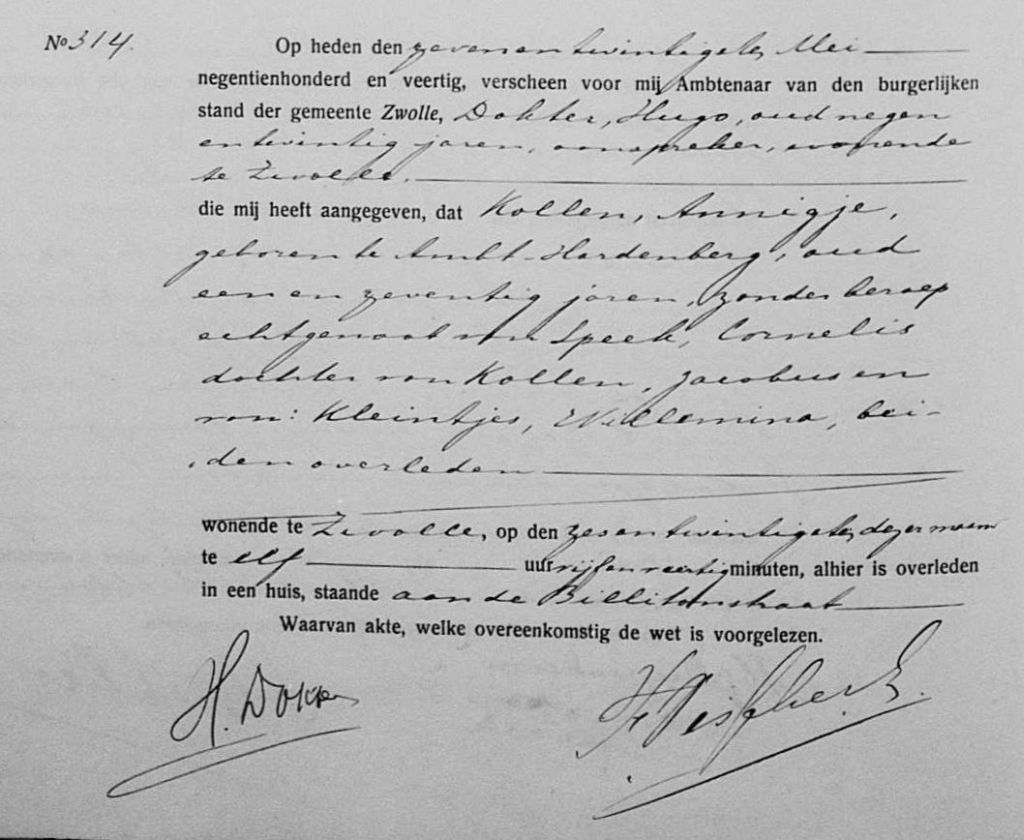 No 314.
Op heden den zevenentwintigsten Mei
negentienhonderd en veertig, verscheen voor mij Ambtenaar van den burgerlijken
stand der gemeente Zwolle, Dokter, Hugo, oud negen
en twintig jaren, aanspreker, wonende
te Zwolle.
die mij heeft aangegeven, dat Kollen, Annigje,
geboren te Ambt-Hardenberg, oud
een en zeventig jaren, zonder beroep
echtgenoot van Speek, Cornelis
dochter van Kollen, Jacobus en
van: Kleintjes, Willemina, bei-
den overleden
wonende te Zwolle, op den zesentwintigsten dezer maand
te elf uur vijfenveertig minuten, alhier is overleden
in een huis, staande aan de Billitonstraat
Waarvan akte, welke overeenkomstig de wet is voorgelezen.
H. Dokter